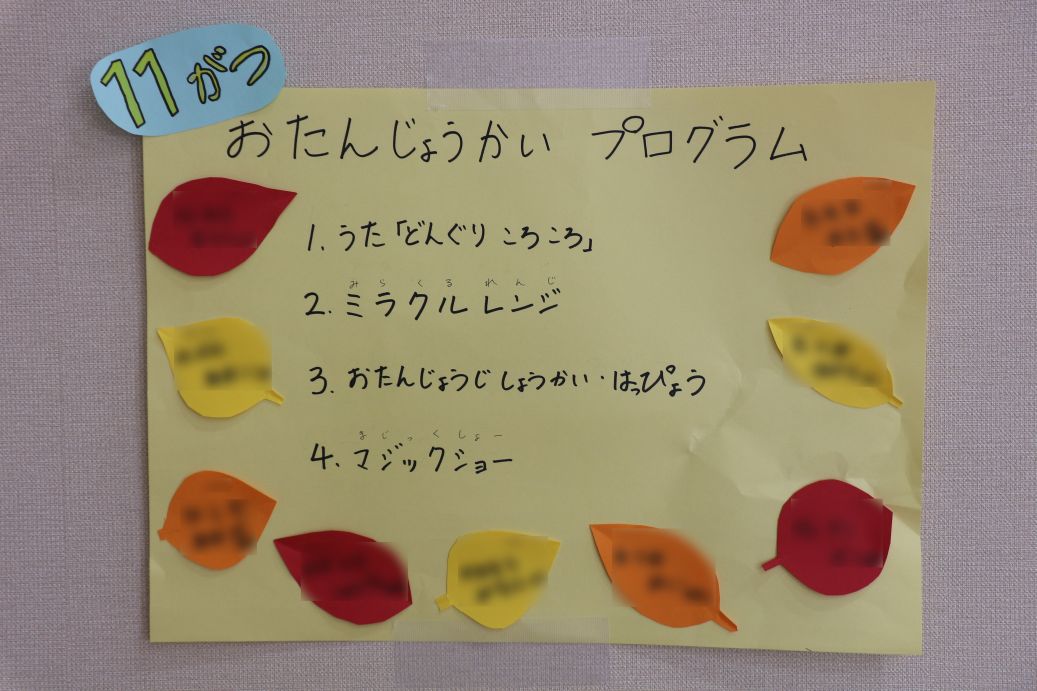 11がつ
おたんじょうかい プログラム
1. うた「どんぐり ころころ」
みらくるれんじ
2. ミラクルレンジ
3. おたんじょうじ しょうかい・はっぴょう
まじっくしょー
4. マジックショー